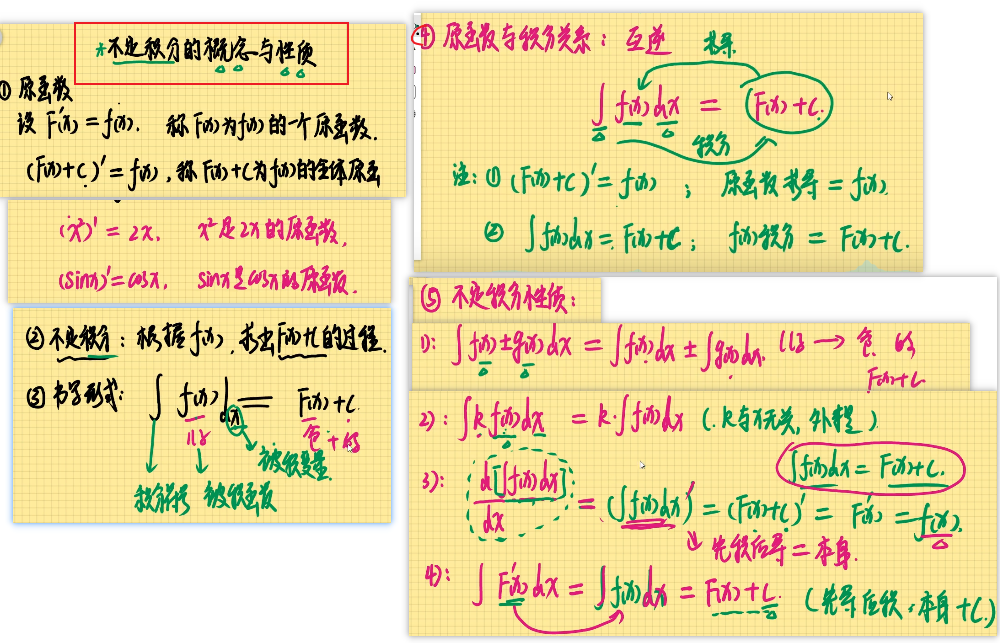 *不定积分的概念与性质
① 原函数
设 F'(x) = f(x). 称 F(x)为f(x)的一个原函数.
(F(x)+C)' = f(x), 称 F(x)+C为f(x)的全体原函
(x²)' = 2x, x²是2x的原函数,
(sinx)' = cosx, sinx是cosx的原函数.
② 不定积分: 根据f(x), 求出F(x)+C的过程.
③ 书写形式: ∫ f(x) dx = F(x)+C.
被积变量.
积分符号 被积函数
④ 原函数与积分关系: 互逆 求导
∫ f(x) dx = (F(x)+C)
积分
注: ① (F(x)+C)' = f(x) ; 原函数求导 = f(x)
② ∫ f(x)dx = F(x)+C ; f(x)积分 = F(x)+C.
⑤ 不定积分性质:
1): ∫ f(x) ± g(x) dx = ∫ f(x)dx ± ∫ g(x)dx.
F(x)+C
2): ∫ k f(x) dx = k·∫ f(x)dx (k与x无关, 外提)
∫ f(x)dx = F(x)+C.
3): d[∫ f(x)dx]/dx = (∫ f(x)dx)' = (F(x)+C)' = F'(x) = f(x).
先积后导 = 本身.
4): ∫ F'(x) dx = ∫ f(x)dx = F(x)+C (先导后积, 本身+C.)